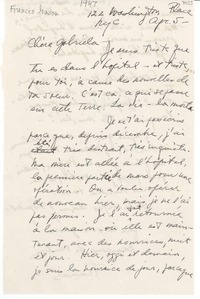 1947
122 Washington Place
NYC Apr. 5 -
Chère Gabriela
Je suis triste que
tu es dans l'hôpital - et triste,
pour toi, à cause des nouvelles de
ta sœur. C'est ça, a qui se passe
sur cette Terre. La vie - la mort.
Je n'ai pas écris
parce que, depuis decembre, j'ai
été très distrait, très inquiète.
Ma mère est allée à l'hôpital,
la première partie de mars pour une
opération. On a voulu opérer
de nouveau hier, mais je ne l'ai
pas permis. Je l'ai retournée
à la maison, où elle est main-
tenant, avec des nourrices, nuit
et jour. Hier, aujourd'hui et demain,
je suis la nourrice de jour, parceque